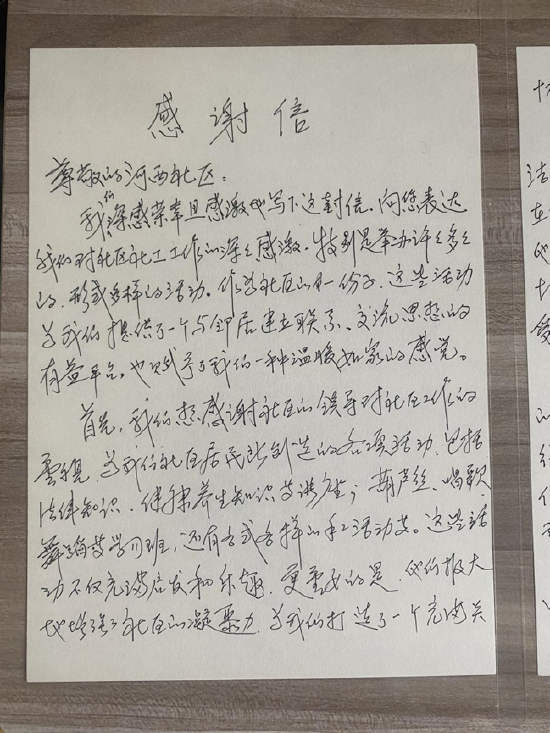 感谢信
尊敬的河西社区：
我们深感荣幸且感激地写下这封信。向您表达
我们对社区社工工作的深深感激。特别是举办许许多多
的、形式多样的活动。作为社区的一份子，这些活动
为我们提供了一个与邻居建立联系、交流思想的
有益平台。也赋予了我们一种温暖如家的感觉。
首先，我们想感谢社区的领导对社区工作的
重视，为我们社区居民所创造的各项活动，包括
法律知识、保健养生知识等讲座；葫芦丝、唱歌、
舞蹈等学习班，还有各式各样的手工活动等。这些活
动不仅充满启发和乐趣，更重要的是，他们极大
地增强了社区的凝聚力，为我们打造了一个充满关